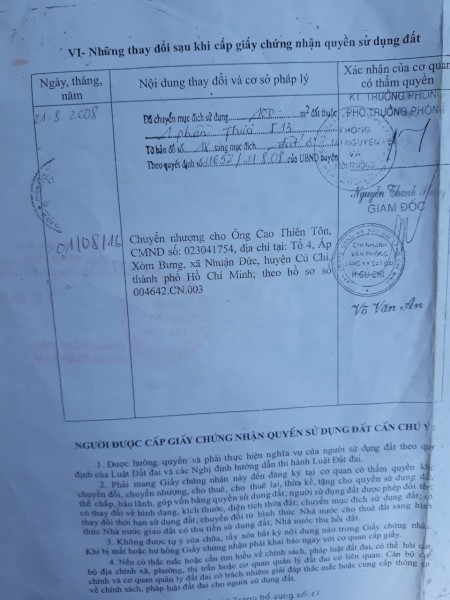 VI- Những thay đổi sau khi cấp giấy chứng nhận quyền sử dụng đất
Ngày, tháng, năm
Nội dung thay đổi và cơ sở pháp lý
Xác nhận của cơ quan
có thẩm quyền
21.8.2008
Đã chuyển mục đích sử dụng 100 m² đất thuộc
1 phần Thửa 513
Tờ bản đồ số 18 sang mục đích đất ở
Theo quyết định số 11652/21.8.08 của UBND huyện
KT TRƯỞNG PHÒNG
PHÓ TRƯỞNG PHÒNG
PHÒNG
TÀI NGUYÊN
VÀ
MÔI TRƯỜNG
Nguyễn Thanh
01/08/16
Chuyển nhượng cho Ông Cao Thiên Tôn,
CMND số: 023041754, địa chỉ tại: Tổ 4, Ấp
Xóm Bưng, xã Nhuận Đức, huyện Củ Chi,
thành phố Hồ Chí Minh; theo hồ sơ số
004642.CN.003
GIÁM ĐỐC
CHI NHÁNH
VĂN PHÒNG
ĐĂNG KÝ ĐẤT ĐAI
H.CỦ CHI
Võ Văn An
NGƯỜI ĐƯỢC CẤP GIẤY CHỨNG NHẬN QUYỀN SỬ DỤNG ĐẤT CẦN CHÚ Ý:
1. Được hưởng quyền và phải thực hiện nghĩa vụ của người sử dụng đất theo quy
định của Luật Đất đai và các Nghị định hướng dẫn thi hành Luật Đất đai.
2. Phải mang Giấy chứng nhận này đến đăng ký tại cơ quan có thẩm quyền khi
chuyển đổi, chuyển nhượng, cho thuê, cho thuê lại, thừa kế, tặng cho quyền sử dụng đất,
thế chấp, bảo lãnh, góp vốn bằng quyền sử dụng đất; người sử dụng đất được phép đổi tên;
có thay đổi về hình dạng, kích thước, diện tích thửa đất; chuyển mục đích sử dụng đất; có
thay đổi thời hạn sử dụng đất; chuyển đổi từ hình thức Nhà nước cho thuê đất sang hình
thức Nhà nước giao đất có thu tiền sử dụng đất; Nhà nước thu hồi đất.
3. Không được tự ý sửa chữa, tẩy xóa bất kỳ nội dung nào trong Giấy chứng nhận.
Khi bị mất hoặc hư hỏng Giấy chứng nhận phải khai báo ngay với cơ quan cấp giấy.
4. Nếu có thắc mắc hoặc cần tìm hiểu về chính sách, pháp luật đất đai, có thể hỏi cán
bộ địa chính xã, phường, thị trấn hoặc cơ quan quản lý đất đai có liên quan. Cán bộ địa
chính và cơ quan quản lý đất đai có trách nhiệm giải đáp thắc mắc hoặc cung cấp thông tin
về chính sách, pháp luật đất đai cho người sử dụng đất.